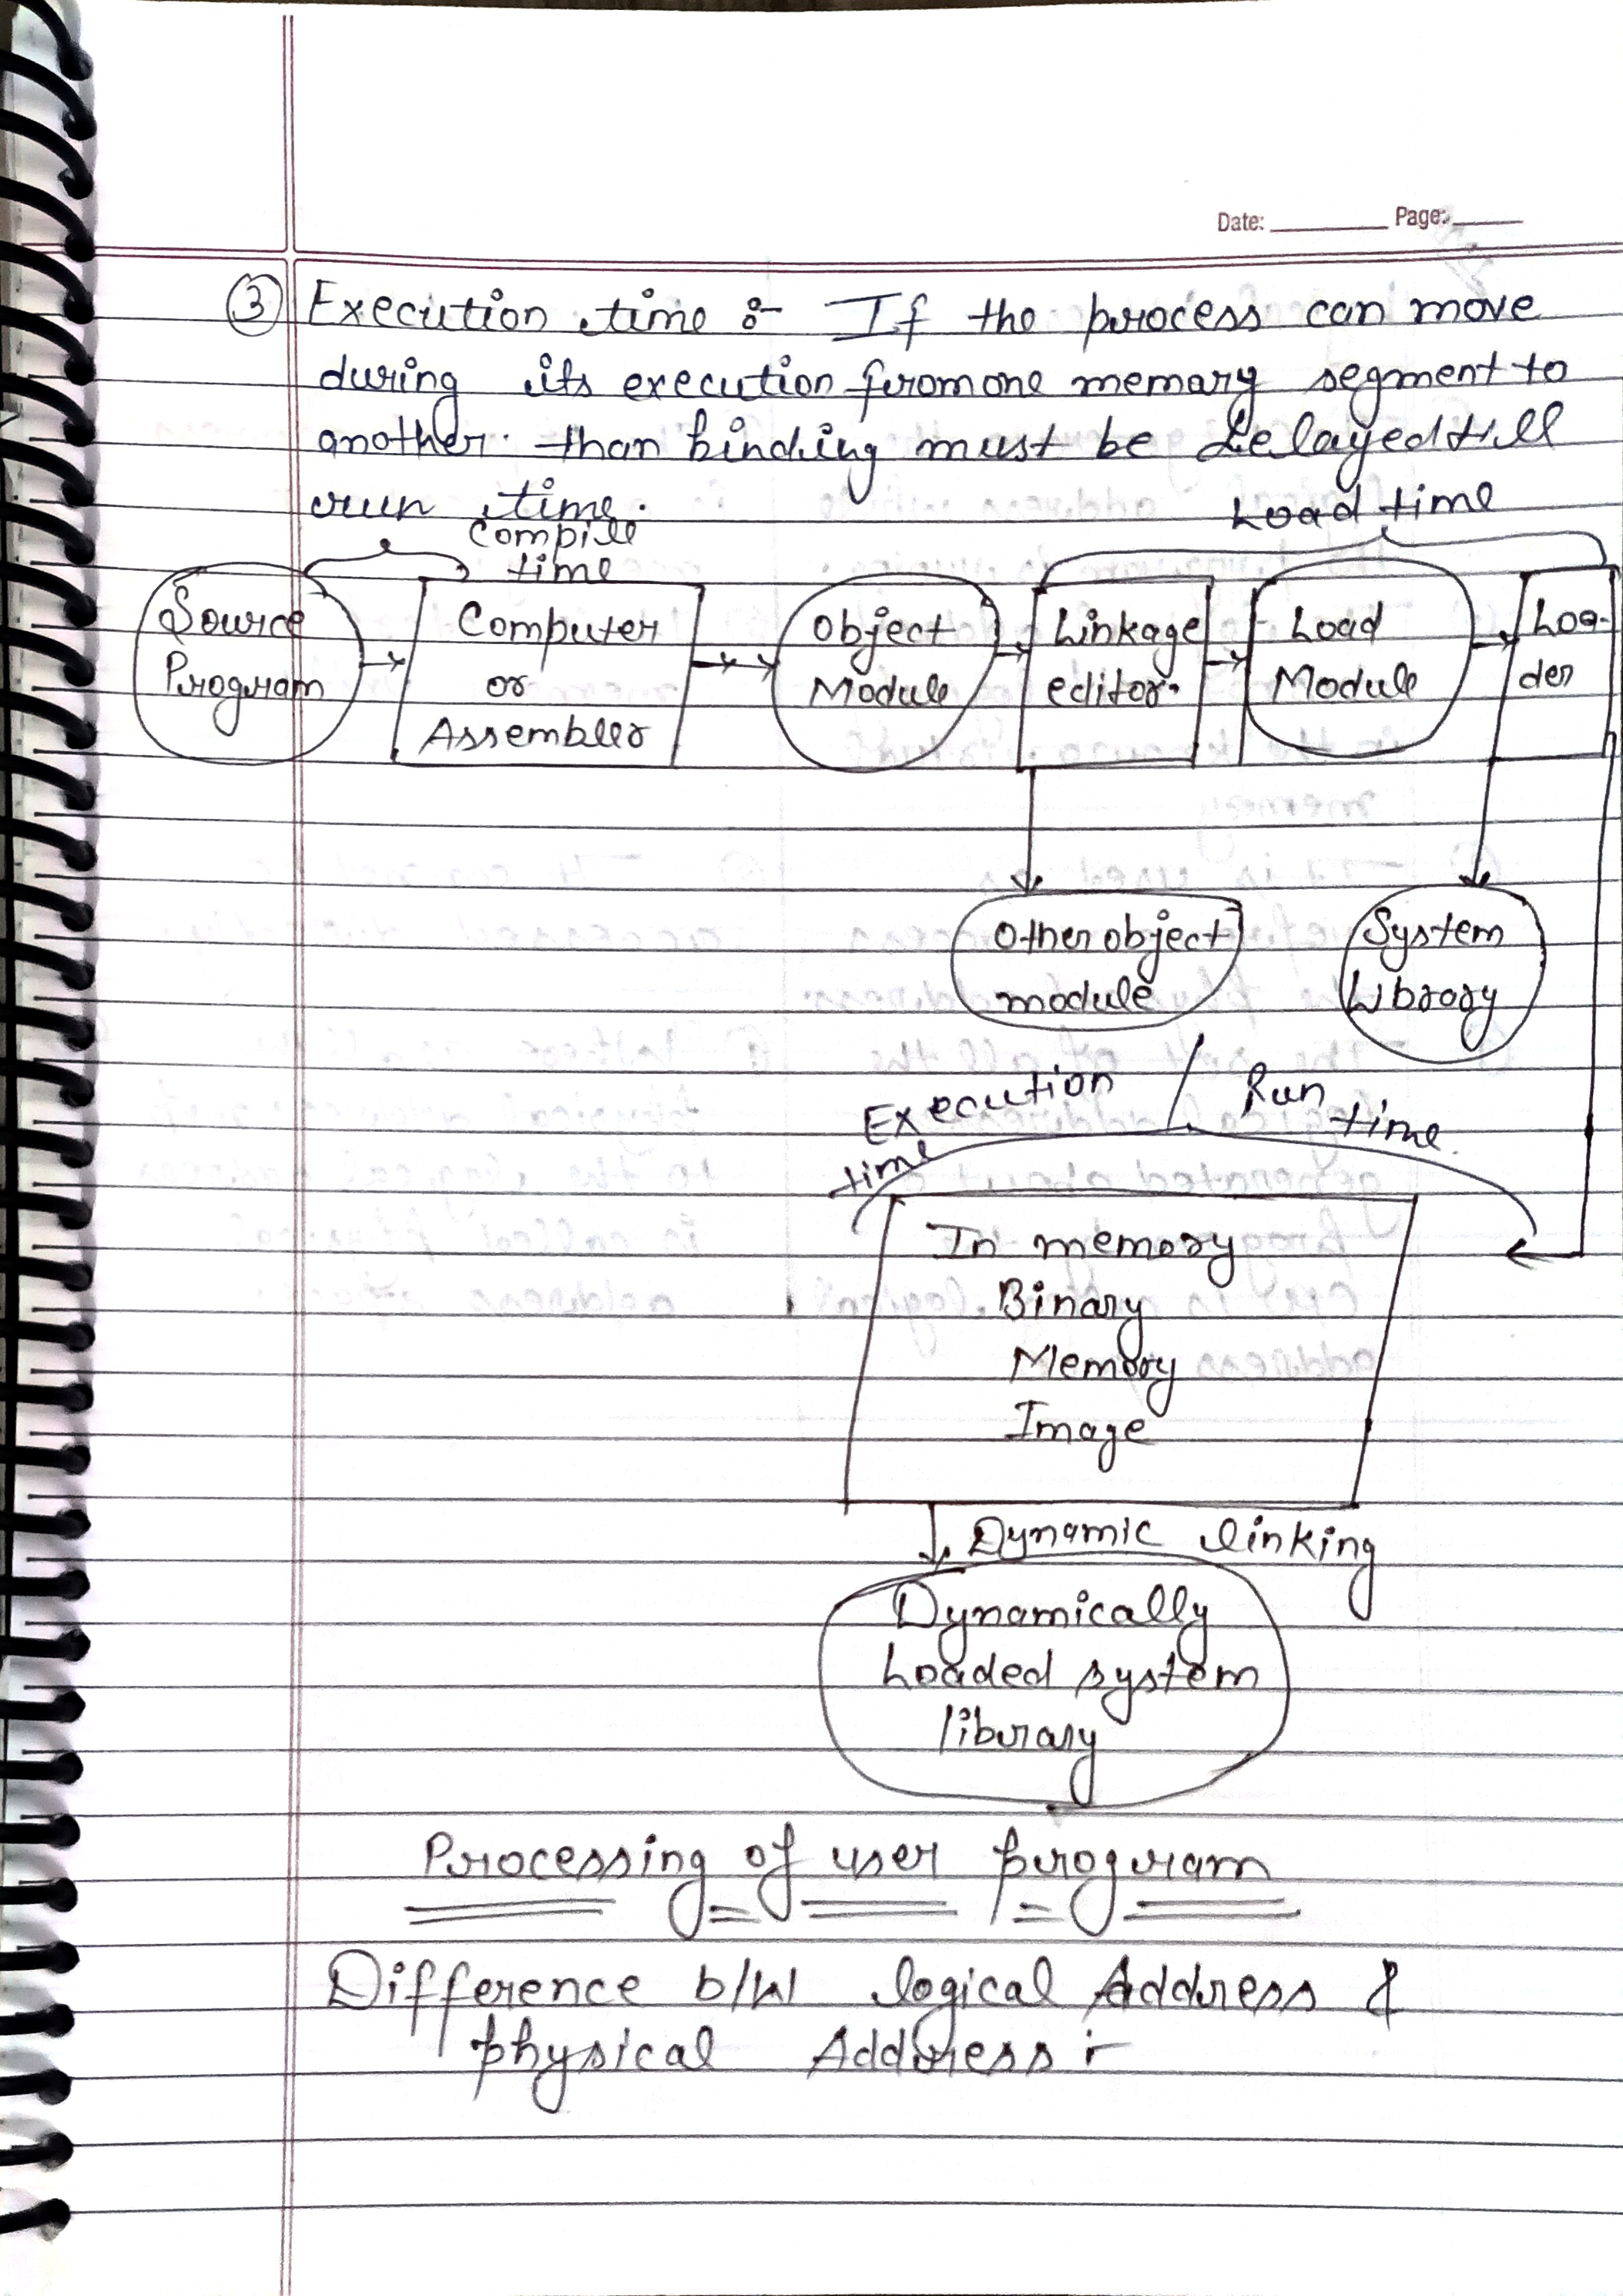 Date: ______ Page: ____
③ Execution time :- If the process can move
during its execution from one memary segment to
another. than binding must be delayed till
run time.
Compile
time
Load time
Source
Program
Computer
or
Assembler
Object
Module
Linkage
editor.
Load
Module
Loa-
der
Other object
module
System
Library
Execution / Run
time time.
In memory
Binary
Memory
Image
Dynamic linking
Dynamically
Loaded system
library
Processing of user program
Difference b/w logical Address &
physical Address :-